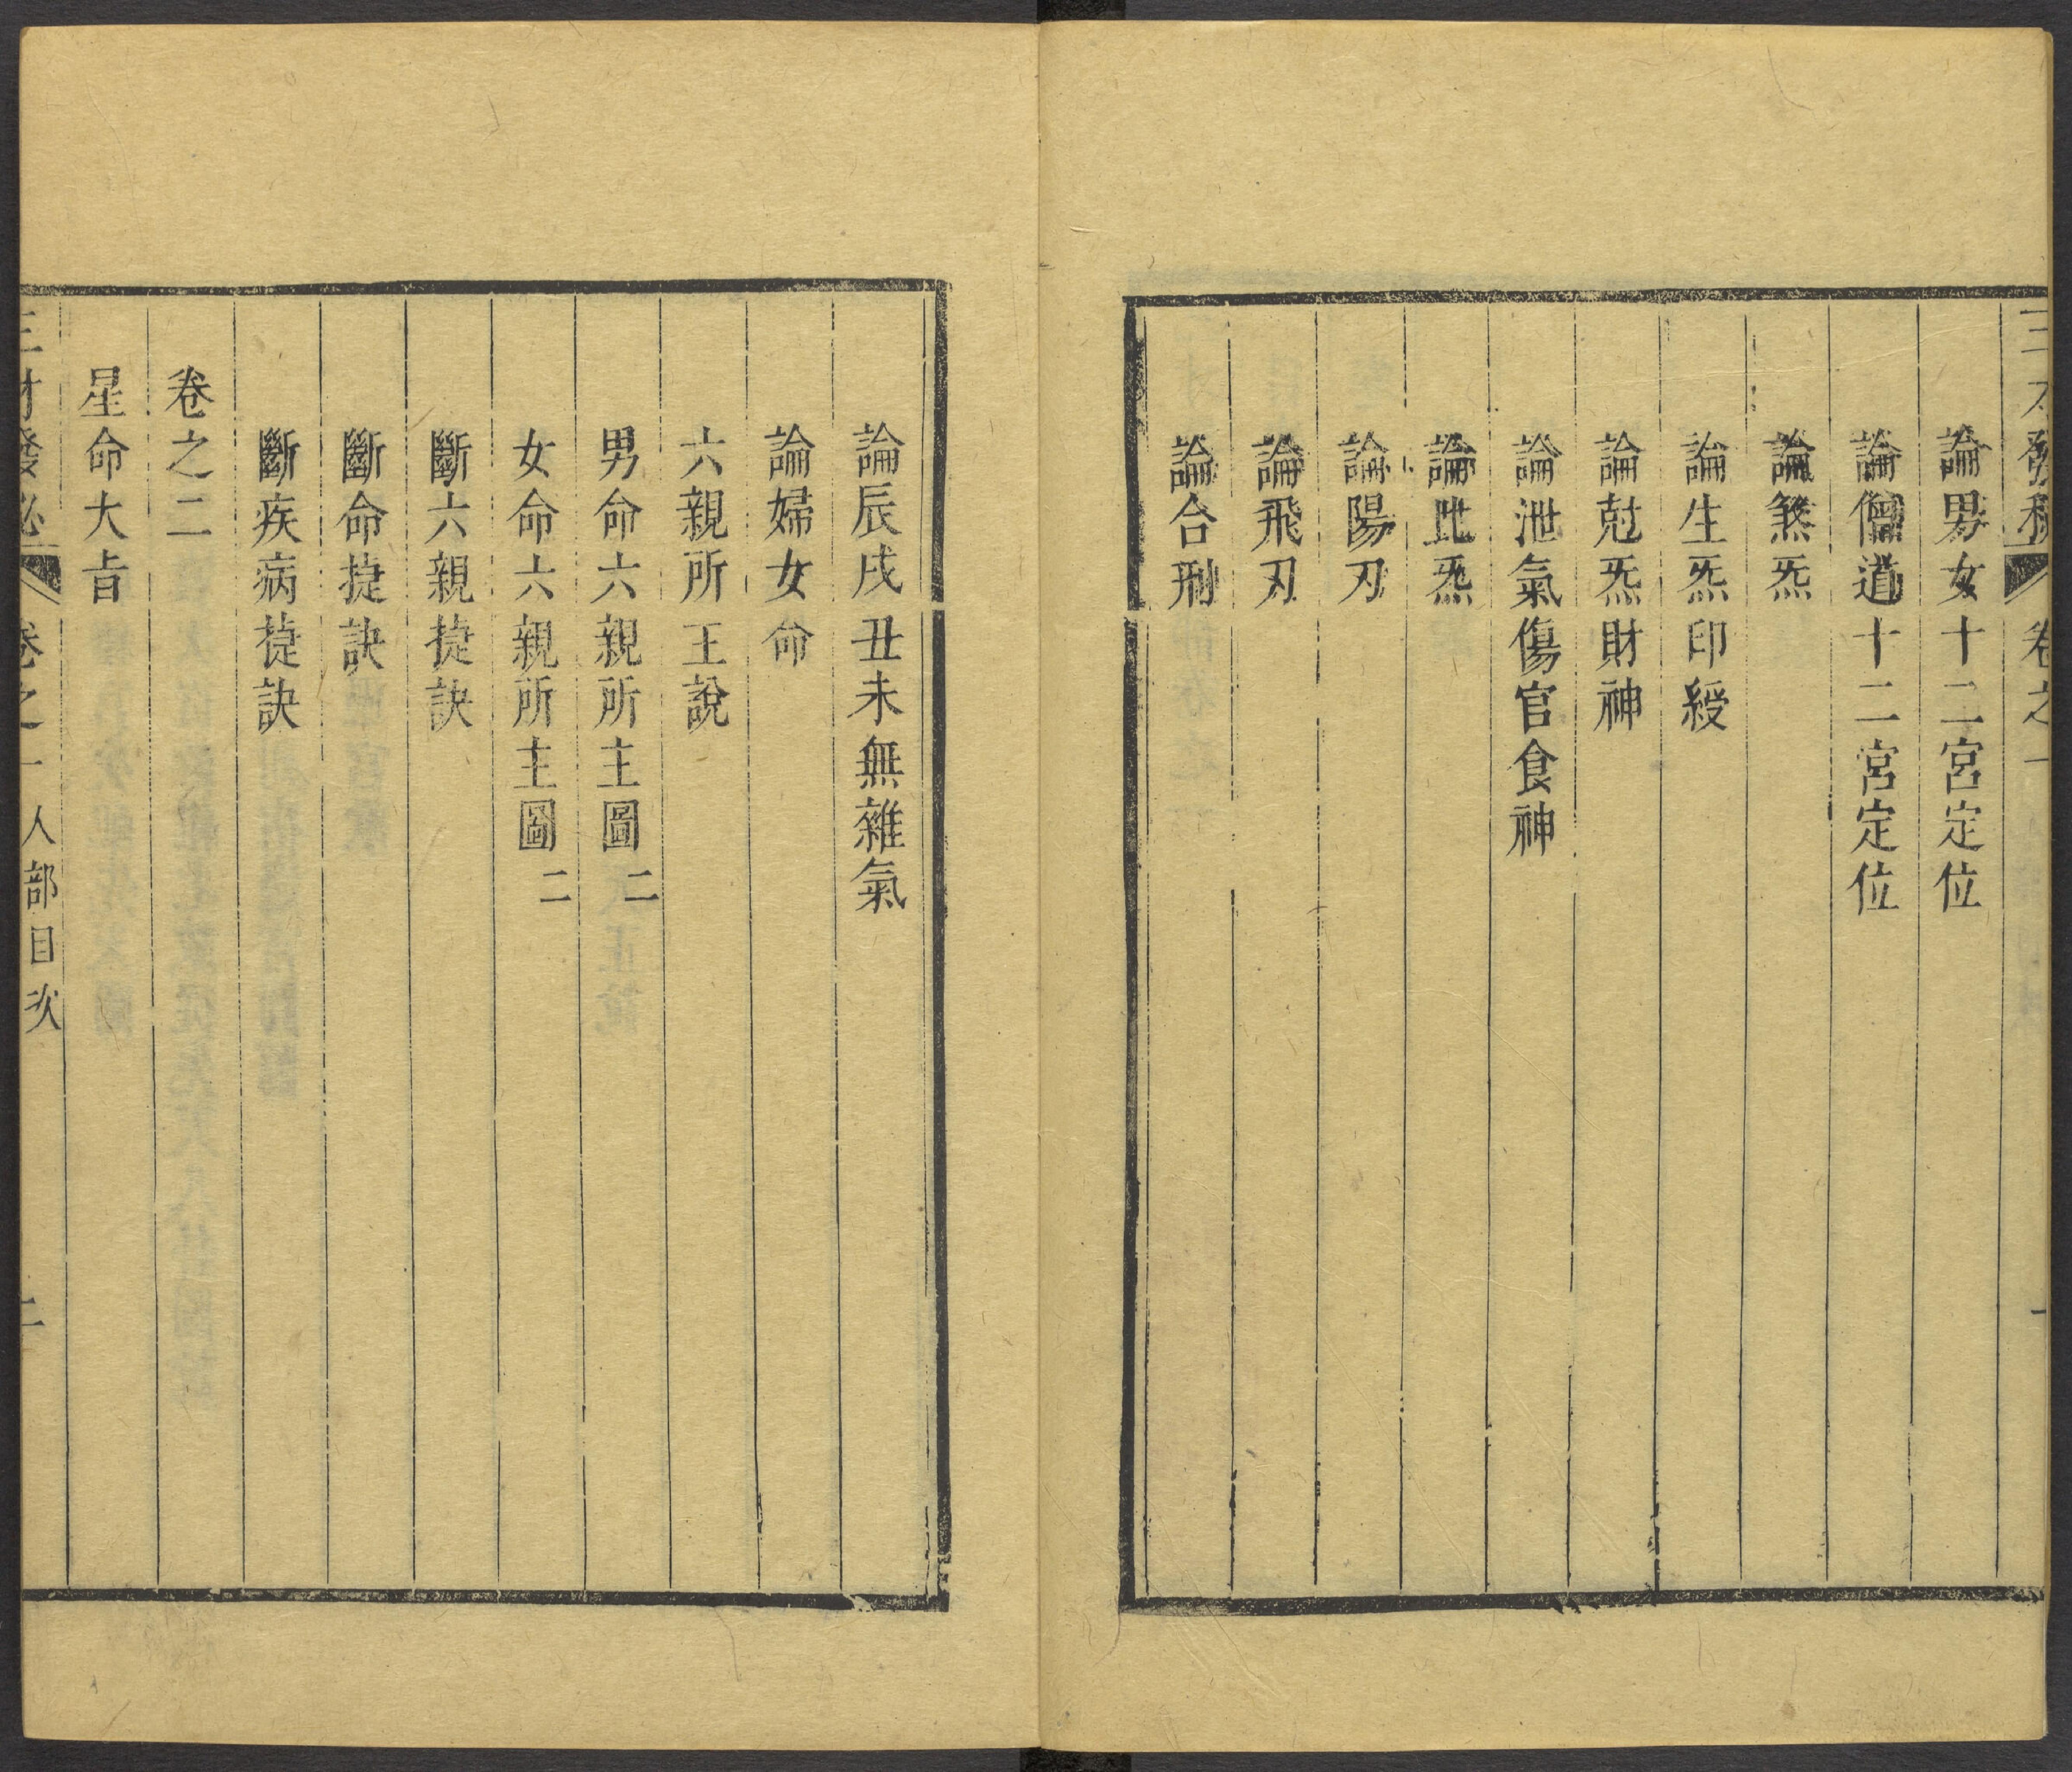 三才發秘 卷之一 一
論男女十二宮定位
論僧道十二宮定位
論煞炁
論生炁印綬
論尅炁財神
論泄氣傷官食神
論比炁
論陽刃
論飛刃
論合刑
論辰戌丑未無雜氣
論婦女命
六親所王說
男命六親所主圖二
女命六親所主圖二
斷六親㨗訣
斷命㨗訣
斷疾病㨗訣
卷之二
星命大㫖
三才發秘 卷之一人部目次 二